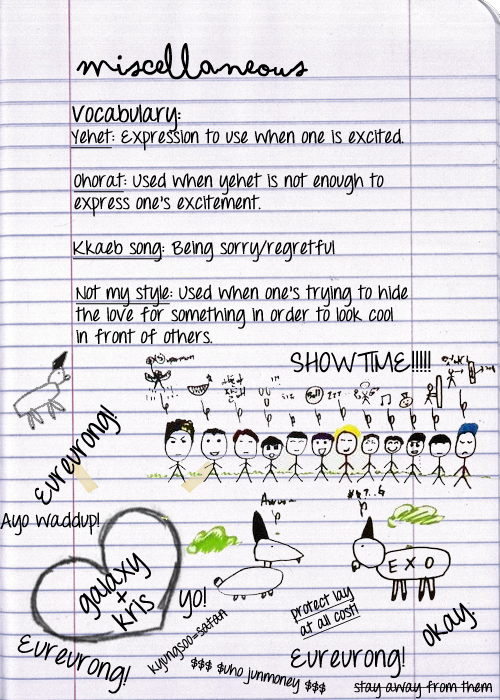 miscellaneous
Vocabulary:
Yehet: Expression to use when one is excited.
Ohorat: Used when yehet is not enough to
express one's excitement.
Kkaeb song: Being sorry/regretful
Not my style: Used when one's trying to hide
the love for something in order to look cool
in front of others.
SHOWTIME!!!!!
Eureurong!
Ayo waddup!
galaxy
+
kris
EXO
yo!
kyungsoo=satan
protect lay
at all cost!
okay
Eureurong!
$$$ $uho junmoney $$$
Eureurong!
stay away from them